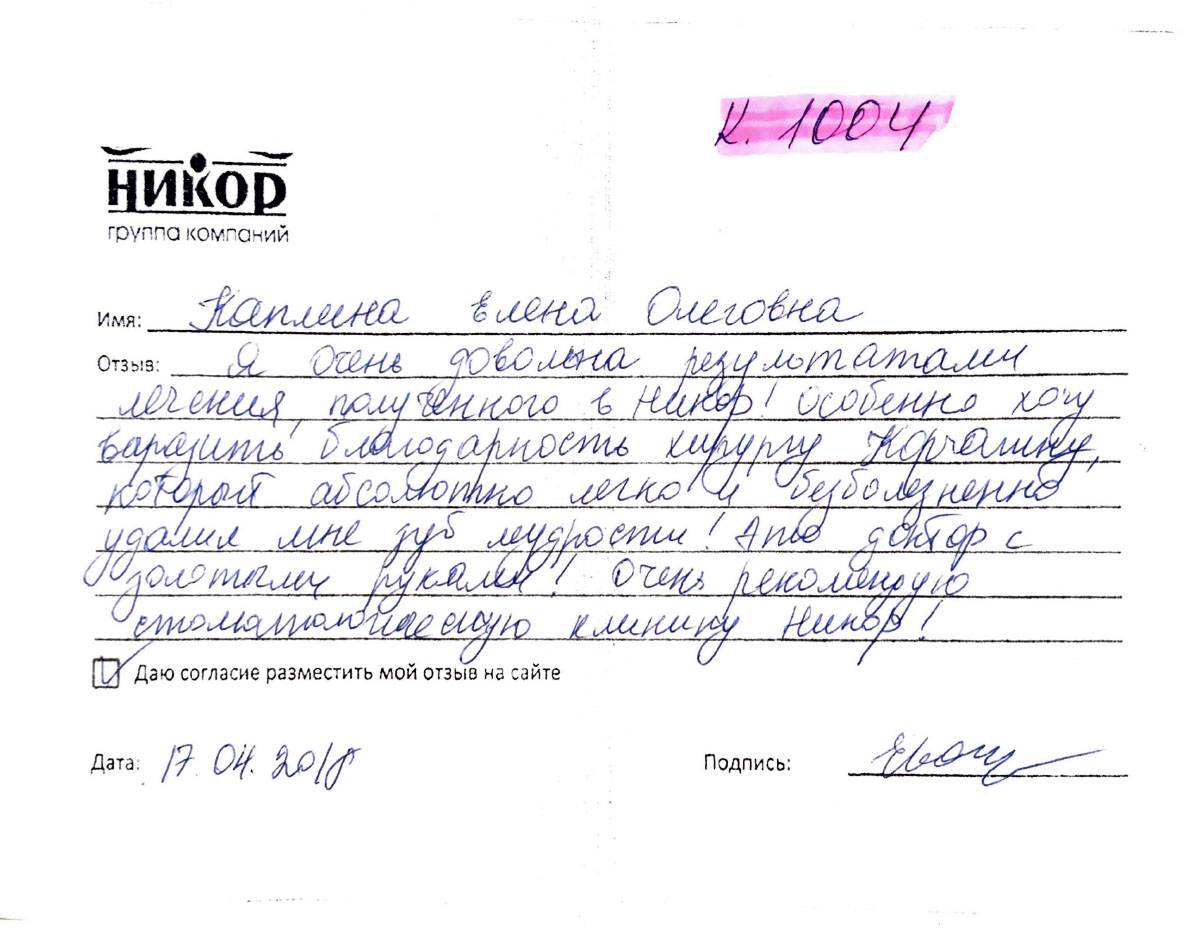 К. 1004
НИКОР
группа компаний
Имя: Каплина Елена Олеговна
Отзыв: Я очень довольна результатами
лечения, полученного в Никор! Особенно хочу
выразить благодарность хирургу Корчагину,
который абсолютно легко и безболезненно
удалил мне зуб мудрости! Это доктор с
золотыми руками! Очень рекомендую
стоматологическую клинику Никор!
Даю согласие разместить мой отзыв на сайте
Дата: 17.04.2018 Подпись: